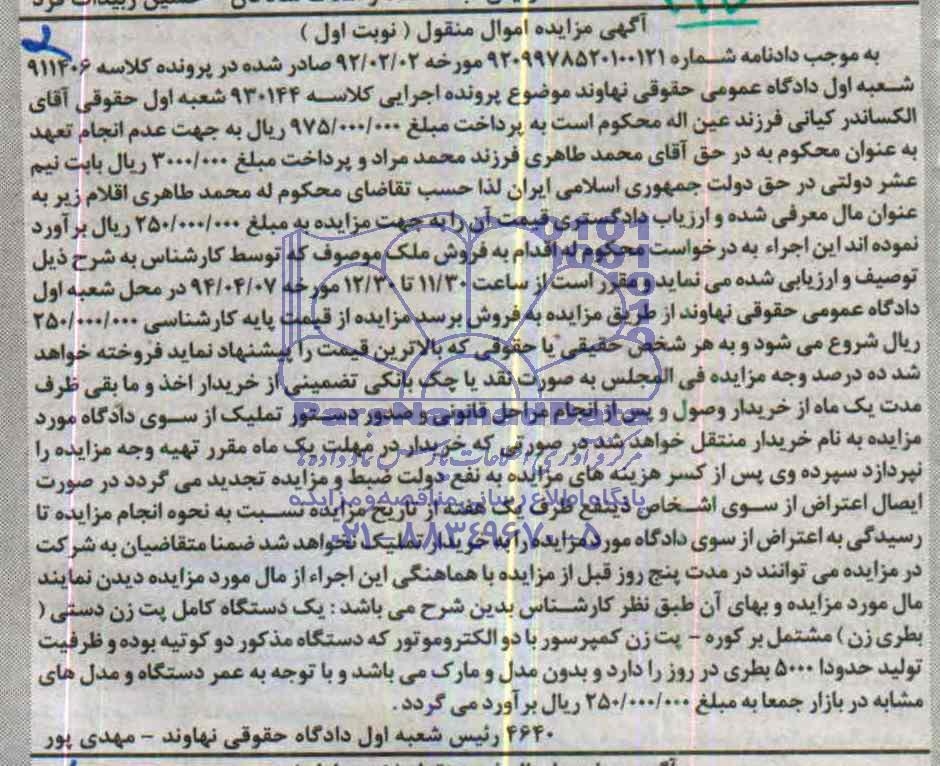 آگهی مزایده اموال منقول ( نوبت اول )
به موجب دادنامه شماره ۹۲۰۹۹۷۸۵۲۰۱۰۰۱۲۱ مورخه ۹۲/۰۲/۰۲ صادر شده در پرونده کلاسه ۹۱۱۴۰۶
شعبه اول دادگاه عمومی حقوقی نهاوند موضوع پرونده اجرایی کلاسه ۹۳۰۱۴۴ شعبه اول حقوقی آقای
الکساندر کیانی فرزند عین اله محکوم است به پرداخت مبلغ ۹۷۵/۰۰۰/۰۰۰ ریال به جهت عدم انجام تعهد
به عنوان محکوم به در حق آقای محمد طاهری فرزند محمد مراد و پرداخت مبلغ ۳۰۰۰/۰۰۰ ریال بابت نیم
عشر دولتی در حق دولت جمهوری اسلامی ایران لذا حسب تقاضای محکوم له محمد طاهری اقلام زیر به
عنوان مال معرفی شده و ارزیاب دادگستری قیمت آن را به جهت مزایده به مبلغ ۲۵۰/۰۰۰/۰۰۰ ریال برآورد
نموده اند این اجراء به درخواست محکوم له اقدام به فروش ملک موصوف که توسط کارشناس به شرح ذیل
توصیف و ارزیابی شده می نماید و مقرر است از ساعت ۱۱/۳۰ تا ۱۲/۳۰ مورخه ۹۴/۰۴/۰۷ در محل شعبه اول
دادگاه عمومی حقوقی نهاوند از طریق مزایده به فروش برسد مزایده از قیمت پایه کارشناسی ۲۵۰/۰۰۰/۰۰۰
ریال شروع می شود و به هر شخص حقیقی یا حقوقی که بالاترین قیمت را پیشنهاد نماید فروخته خواهد
شد ده درصد وجه مزایده فی المجلس به صورت نقد یا چک بانکی تضمینی از خریدار اخذ و ما بقی ظرف
مدت یک ماه از خریدار وصول و پس از انجام مراحل قانونی و صدور دستور تملیک از سوی دادگاه مورد
مزایده به نام خریدار منتقل خواهد شد در صورتی که خریدار در مهلت یک ماه مقرر تهیه وجه مزایده را
نپردازد سپرده وی پس از کسر هزینه های مزایده به نفع دولت ضبط و مزایده تجدید می گردد در صورت
ایصال اعتراض از سوی اشخاص ذینفع ظرف یک هفته از تاریخ مزایده نسبت به نحوه انجام مزایده تا
رسیدگی به اعتراض از سوی دادگاه مورد مزایده را به خریدار تملیک نخواهد شد ضمنا متقاضیان به شرکت
در مزایده می توانند در مدت پنج روز قبل از مزایده با هماهنگی این اجراء از مال مورد مزایده دیدن نمایند
مال مورد مزایده و بهای آن طبق نظر کارشناس بدین شرح می باشد : یک دستگاه کامل پت زن دستی (
بطری زن ) مشتمل بر کوره - پت زن کمپرسور با دو الکتروموتور که دستگاه مذکور دو کوتیه بوده و ظرفیت
تولید حدودا ۵۰۰۰ بطری در روز را دارد و بدون مدل و مارک می باشد و با توجه به عمر دستگاه و مدل های
مشابه در بازار جمعا به مبلغ ۲۵۰/۰۰۰/۰۰۰ ریال برآورد می گردد .
۴۶۴۰ رئیس شعبه اول دادگاه حقوقی نهاوند - مهدی پور
پایگاه اطلاع رسانی مناقصه و مزایده
۰۲۱-۸۸۳۴۹۶۷۰-۵